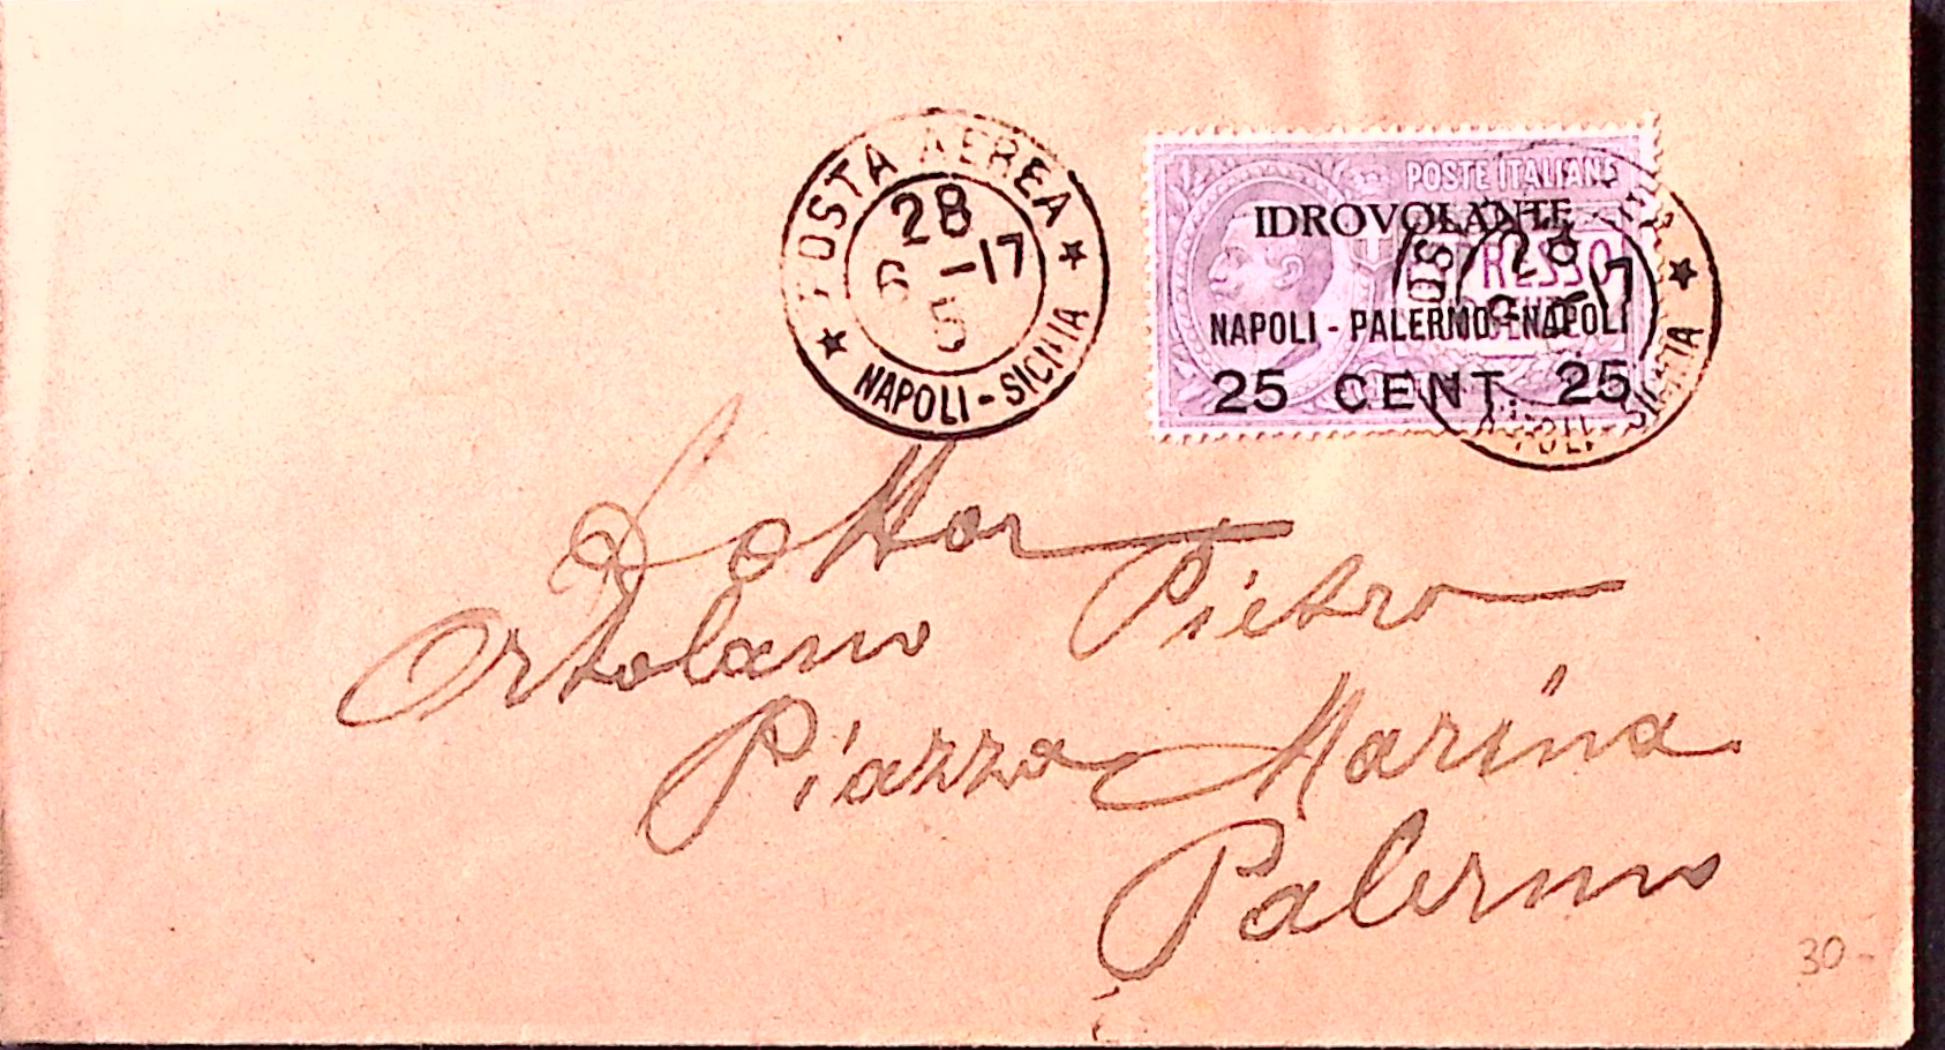 POSTA AEREA
28
6 -17
5
NAPOLI - SICILIA
POSTE ITALIANE
IDROVOLANTE
ESPRESSO
NAPOLI - PALERMO - NAPOLI
25 CENT. 25
28
-17
Dottor
Ortolano Pietro
Piazza Marina
Palermo
30-